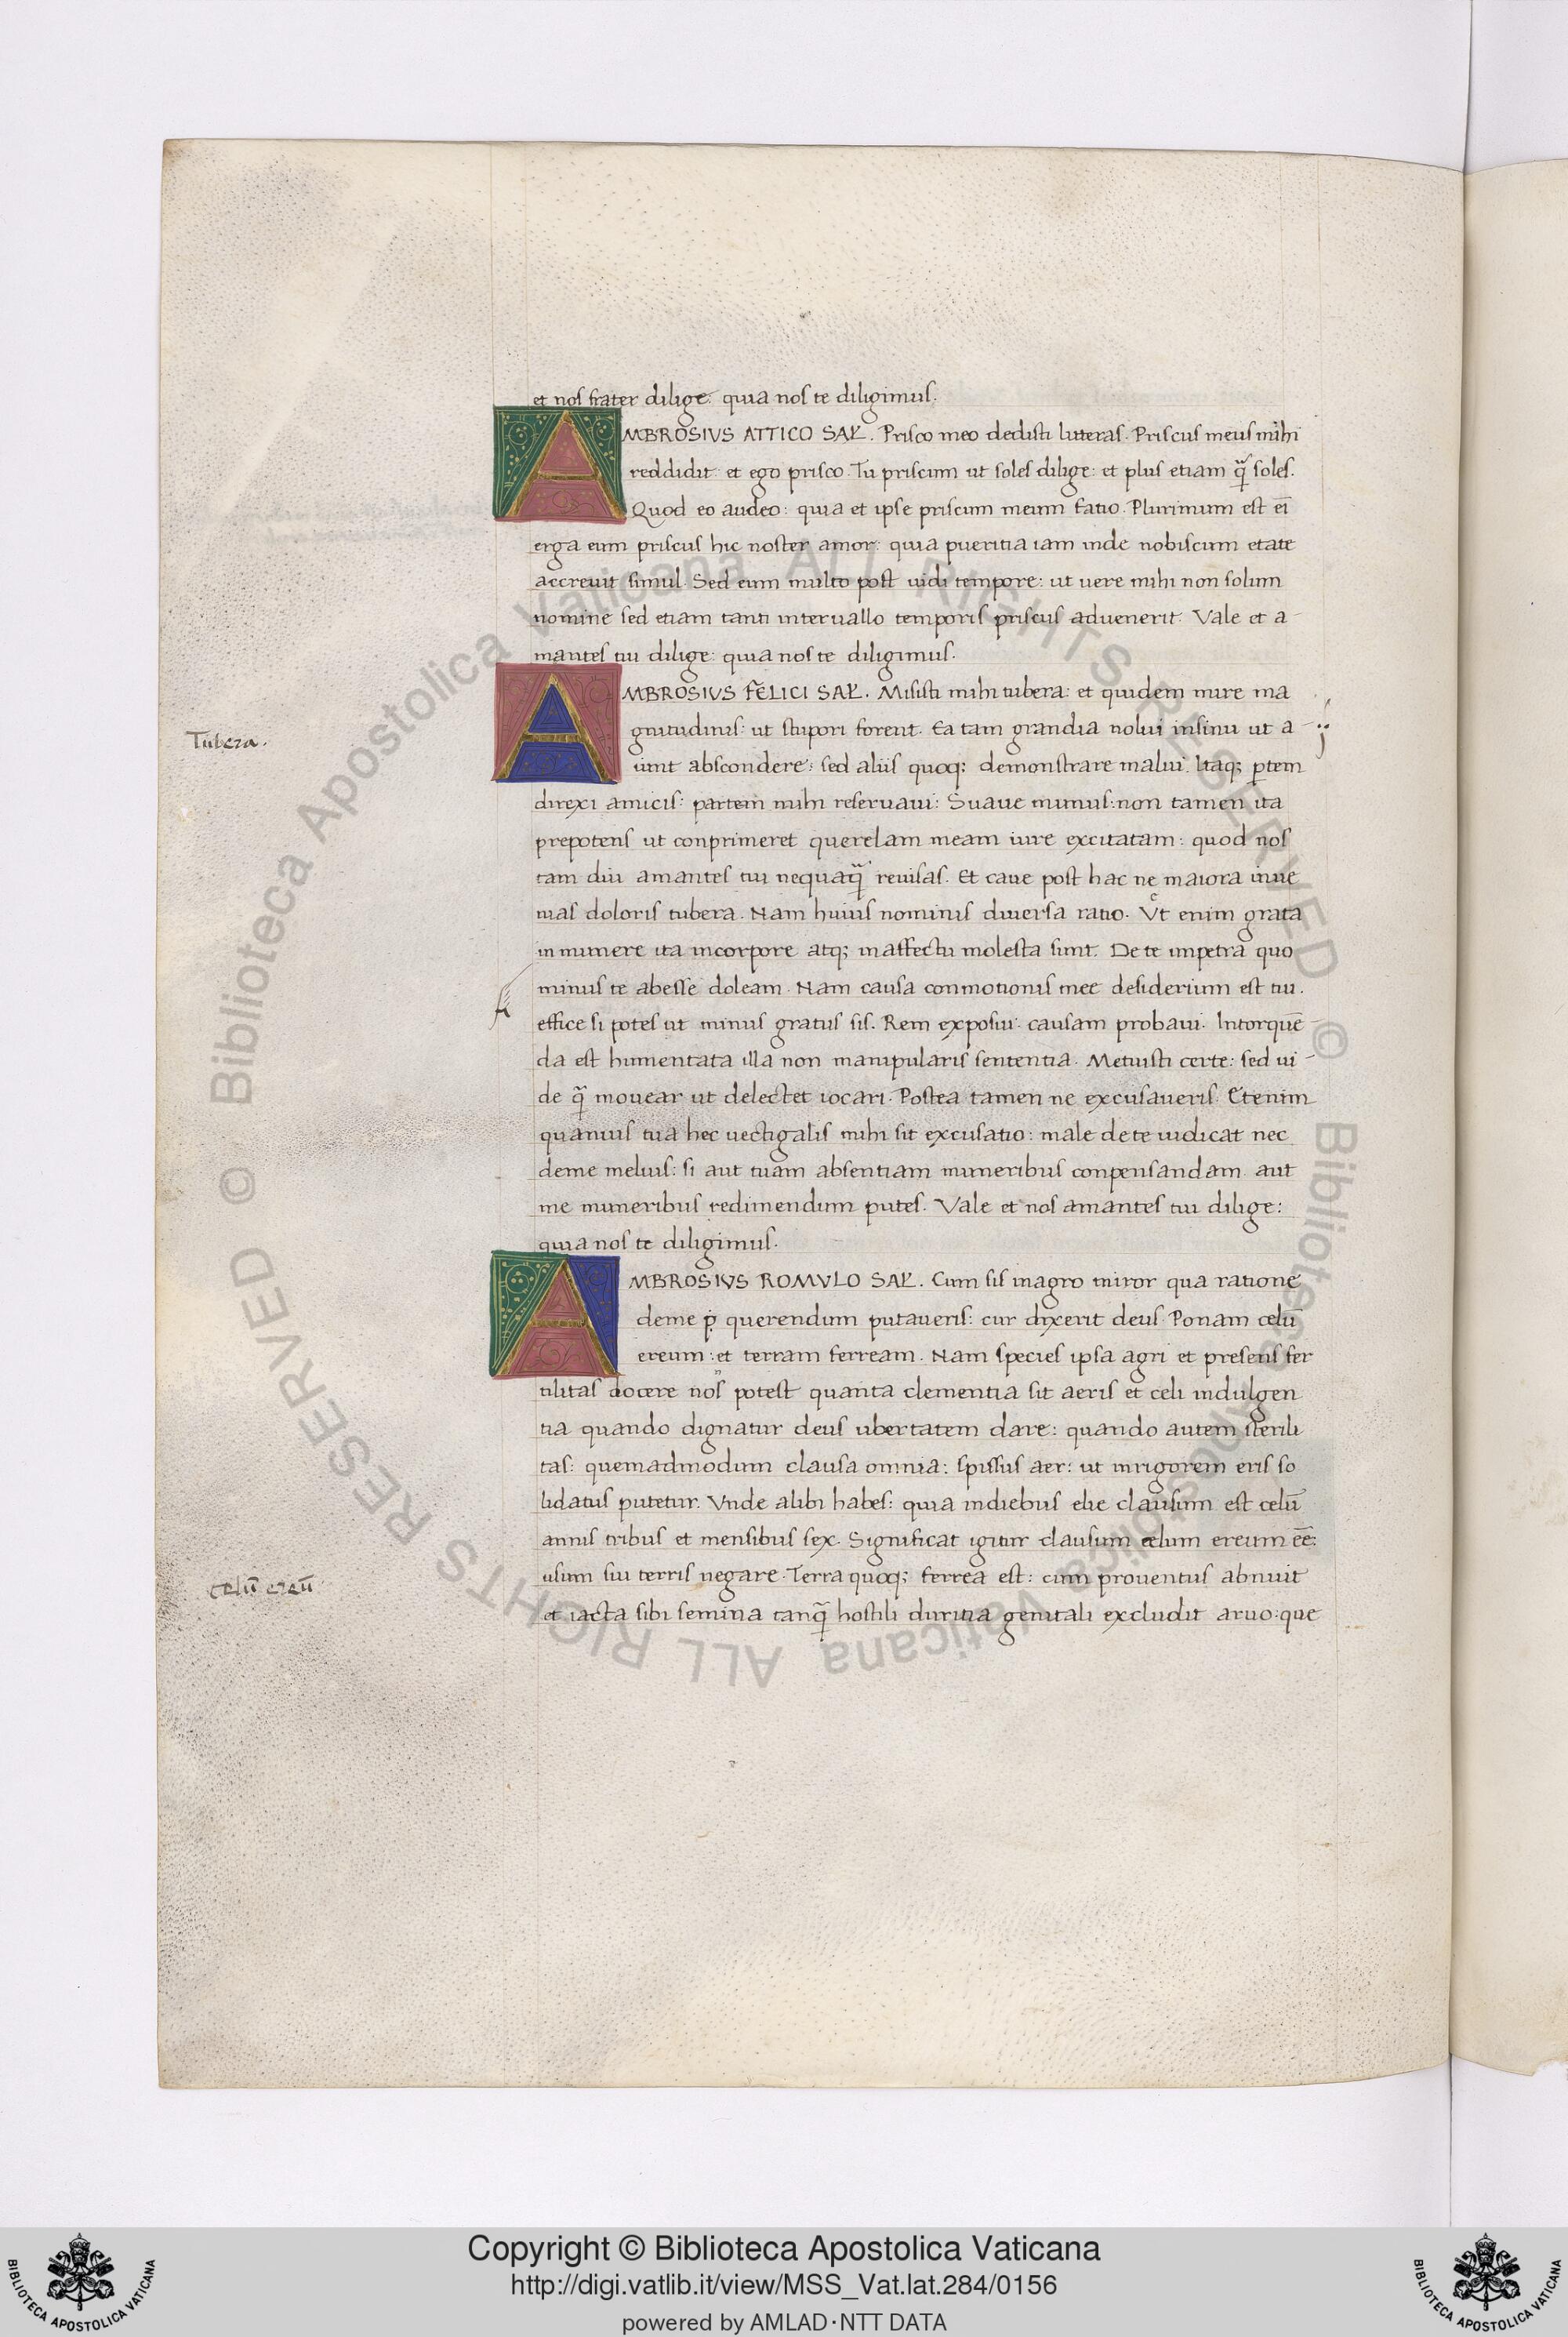 et nos frater dilige: quia nos te diligimus.
AMBROSIVS ATTICO SAL̃. Prisco meo dedisti litteras. Priscus meus mihi
reddidit: et ego prisco. Tu priscum ut soles dilige: et plus etiam q̃ soles.
Quod eo audeo: quia et ipse priscum meum fatio. Plurimum est eī
erga eum priscus hic noster amor: quia pueritia iam inde nobiscum etate
accreuit simul. Sed eum multo post uidi tempore: ut uere mihi non solum
nomine sed etiam tanti interuallo temporis priscus aduenerit. Vale et a-
mantes tui dilige: quia nos te diligimus.
AMBROSIVS FELICI SAL̃. Misisti mihi tubera: et quidem mire ma
gnitudinis: ut stupori forent. Ea tam grandia nolui insinu ut a-
iunt abscondere: sed aliis quoq; demonstrare malui. Itaq; ꝑtem
Tubera.
direxi amicis: partem mihi reseruaui: Suaue munus: non tamen ita
prepotens ut conprimeret querelam meam iure excitatam: quod nos
tam diu amantes tui nequaq̃ reuisas. Et caue post hac ne maiora inue
nias doloris tubera. Nam huius nominis diuersa ratio. Vt enim grata
in munere ita incorpore atq; inaffectu molesta sunt. De te impetra quo
minus te abesse doleam. Nam causa conmotionis mee desiderium est tui.
effice si potes ut minus gratus sis. Rem exposui: causam probaui. Intorquē-
da est humentata illa non manipularis sententia. Metuisti certe: sed ui-
de q̃ mouear ut delectet iocari. Postea tamen ne excusaueris. Etenim
quamuis tua hec uectigalis mihi sit excusatio: male de te iudicat nec
deme melius: si aut tuam absentiam muneribus conpensandam aut
me muneribus redimendum putes. Vale et nos amantes tui dilige:
quia nos te diligimus.
AMBROSIVS ROMVLO SAL̃. Cum sis inagro miror qua ratione
deme ṗ querendum putaueris: cur dixerit deus. Ponam celū
ereum: et terram ferream. Nam species ipsa agri et presens fer
tilitas docere nos potest quanta clementia sit aeris et celi indulgen
tia quando dignatur deus ubertatem dare: quando autem sterili
tas: quemadmodum clausa omnia: spissus aer: ut inrigorem eris so
lidatus putetur. Vnde alibi habes: quia indiebus elie clausum est celū
annis tribus et mensibus sex. Significat igitur clausum celum ereum eē:
usum sui terris negare. Terra quoq; ferrea est: cum prouentus abnuit
celū ereū
et iacta sibi semina tanq̃ hostili duritia genitali excludit aruo: que
Copyright © Biblioteca Apostolica Vaticana
http://digi.vatlib.it/view/MSS_Vat.lat.284/0156
powered by AMLAD·NTT DATA
BIBLIOTECA APOSTOLICA VATICANA
BIBLIOTECA APOSTOLICA VATICANA
© Biblioteca Apostolica Vaticana ALL RIGHTS RESERVED © Biblioteca Apostolica Vaticana ALL RIGHTS RESERVED